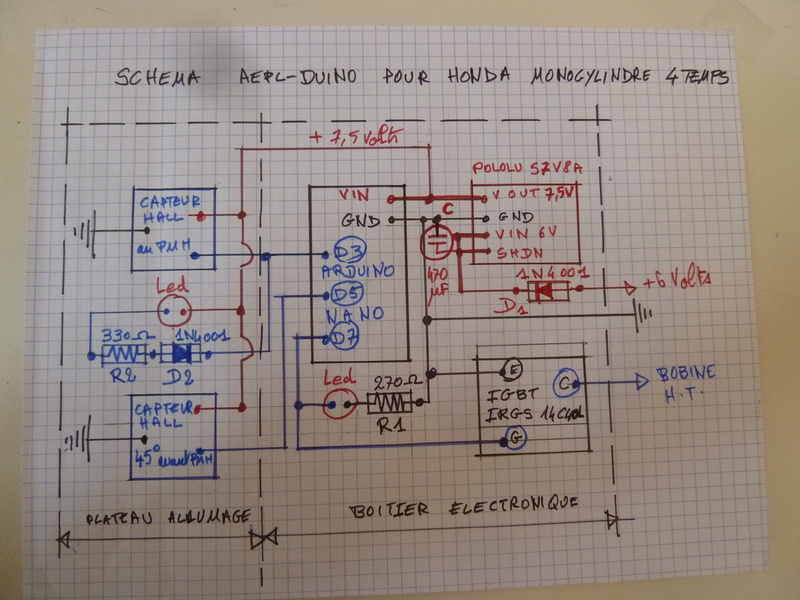 SCHEMA AEPL-DUINO POUR HONDA MONOCYLINDRE 4 TEMPS
+ 7,5 Volts
CAPTEUR
HALL
au PMH
VIN
GND
D3
ARDUINO
D5
NANO
D7
POLOLU S7V8A
V OUT 7,5V
GND
VIN 6V
SHDN
C
470
µF
1N4001
D1
+6 Volts
Led
330Ω
R2
1N4001
D2
CAPTEUR
HALL
45° avant PMH
Led
270Ω
R1
E
IGBT
IRGS 14C40L
C
G
BOBINE
H.T.
PLATEAU ALLUMAGE
BOITIER ELECTRONIQUE